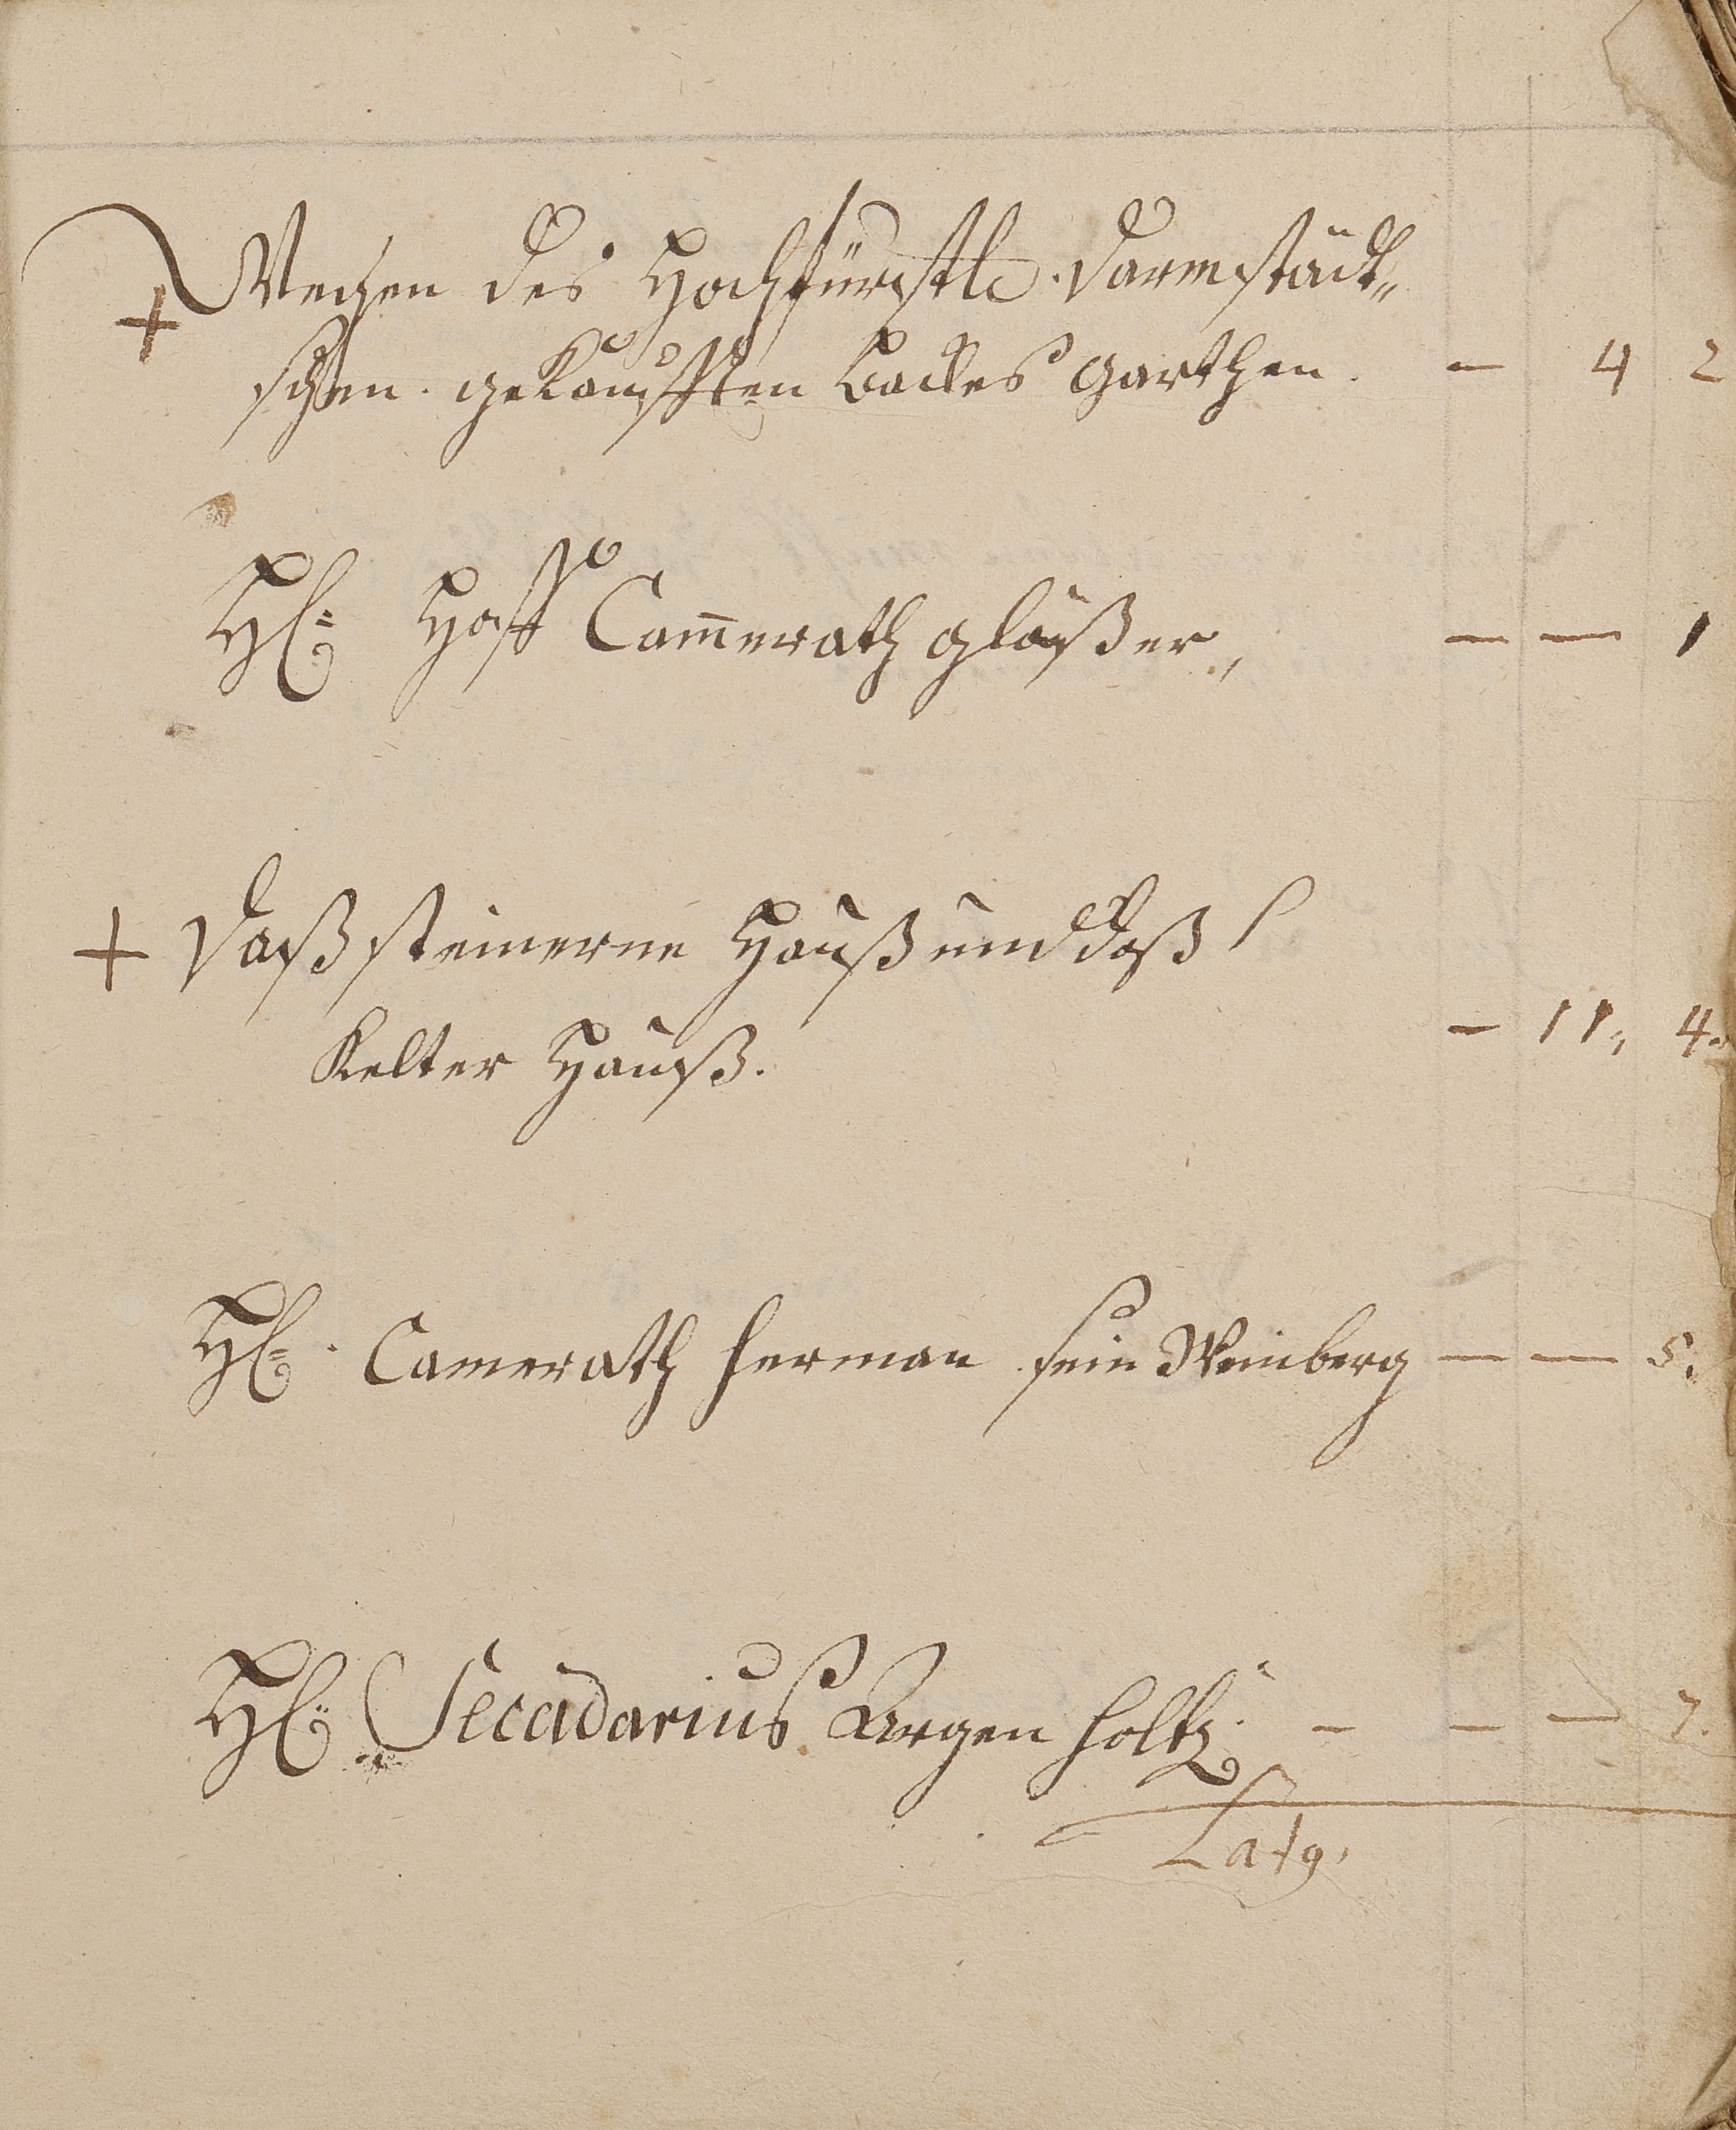 + Wegen des Hochfürstl. Darmstädt„
schen. gekaufften Backes garthen. — 4 2
H: Hoff Cam̄errath gläßer, — — 1
+ Daß steinerne Hauß und daß
Kelter Hauß. — 11, 4.
H: Camerath Herman sein Weinberg — — 5.
H: Secadarius Argen holtz. — — — 7.
Latg.